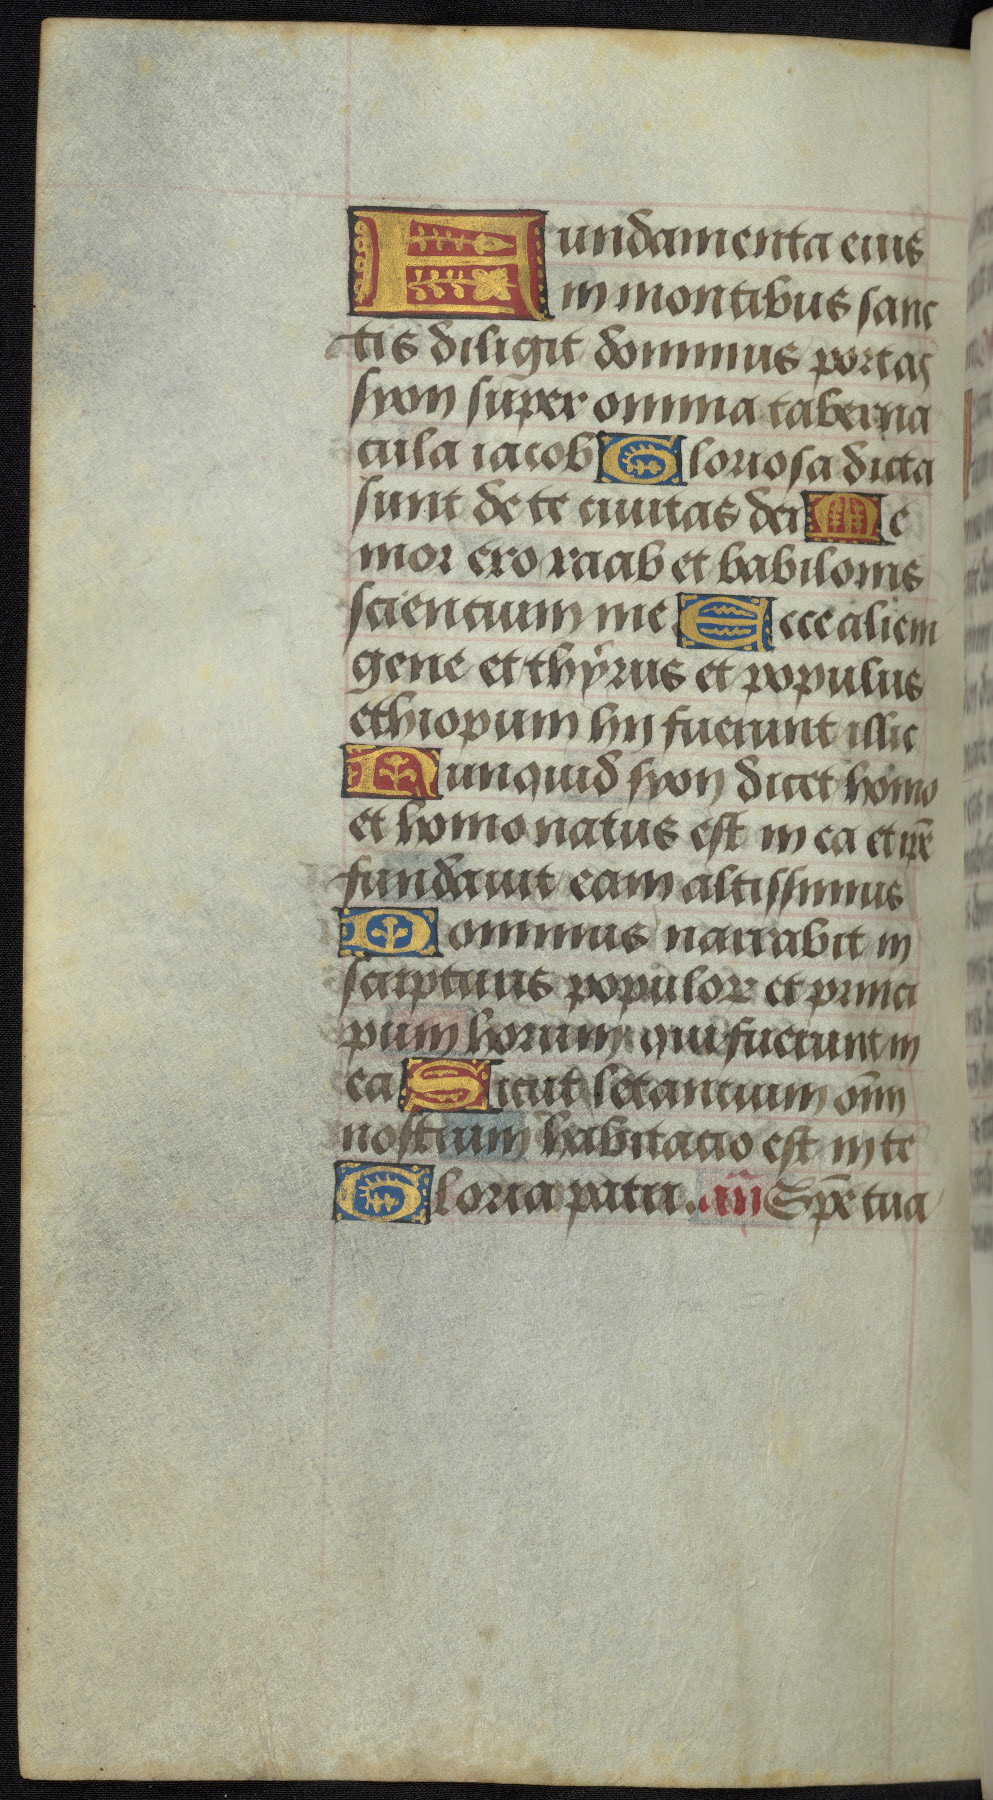 Fundamenta eius
in montibus sanc
tis diligit dominus portas
syon super omnia taberna
cula iacob Gloriosa dicta
sunt de te ciuitas dei Me
mor ero raab et babilonis
scientium me Ecce alieni
gene et thyrus et populus
ethiopum hii fuerunt illic
Nunquid syon dicet homo
et homo natus est in ea et ip̄e
fundauit eam altissimus
Dominus narrabit in
scripturis populoꝝ et princi
pum horum qui fuerunt in
ea Sicut letancium om̄
nostrum habitacio est in te
Gloria patri. an̄ Spe tua